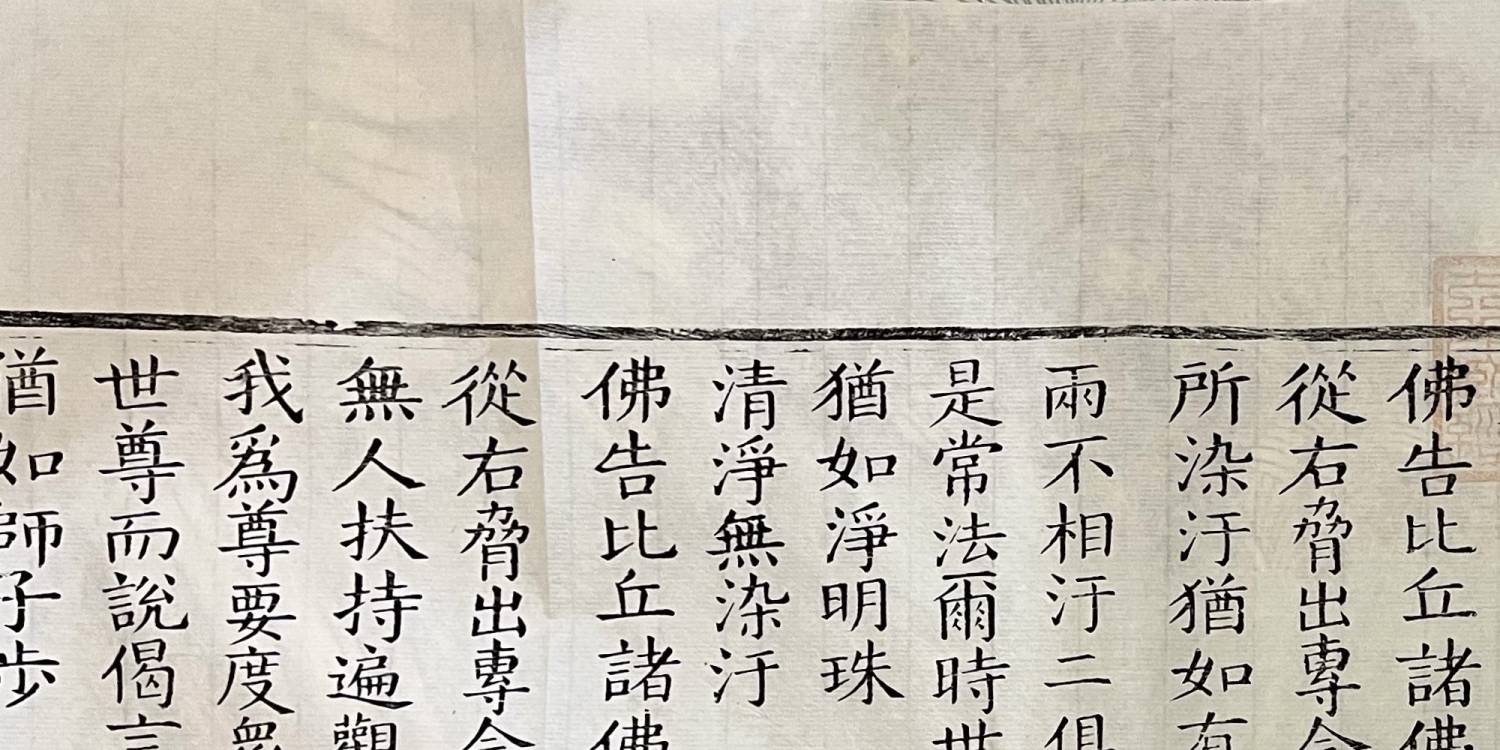 佛告比丘諸佛
從右脅出專念
所染汙猶如有
兩不相汙二俱
是常法爾時世
猶如淨明珠
清淨無染汙
佛告比丘諸佛
從右脅出專念
無人扶持遍觀
我為尊要度眾
世尊而說偈言
猶如師子步